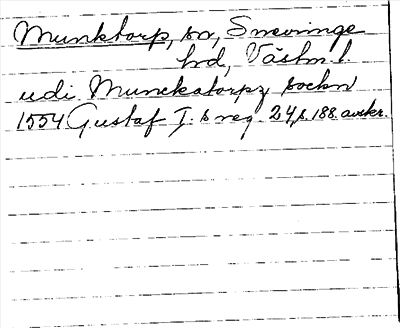 Munktorp, sn, Snevringe
hd, Västm l.
udi Munckatorpz sockn
1554 Gustaf I:s reg. 24, s. 188. avskr.